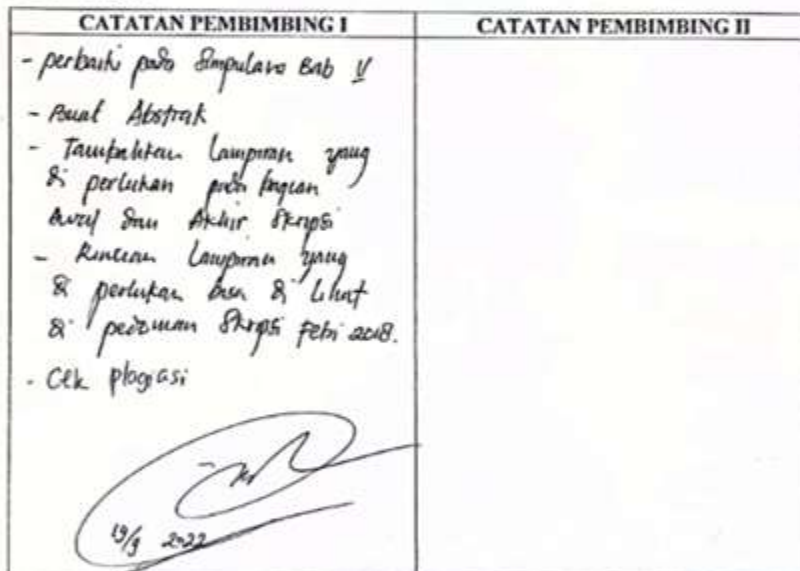 CATATAN PEMBIMBING I
- perbaiki pada Simpulan Bab V
- Buat Abstrak
- Tambahkan Lampiran yang
di perlukan pada bagian
Awal dan Akhir Skripsi
- Rincian Lampiran yang
di perlukan bisa di Lihat
di pedoman Skripsi Febi 2018.
- Cek plagiasi
19/9 2022
CATATAN PEMBIMBING II